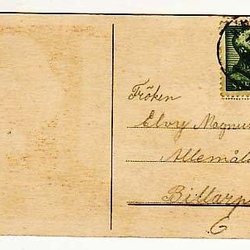 Fröken
Elvy Magnu
Allemåla
Bidlarp